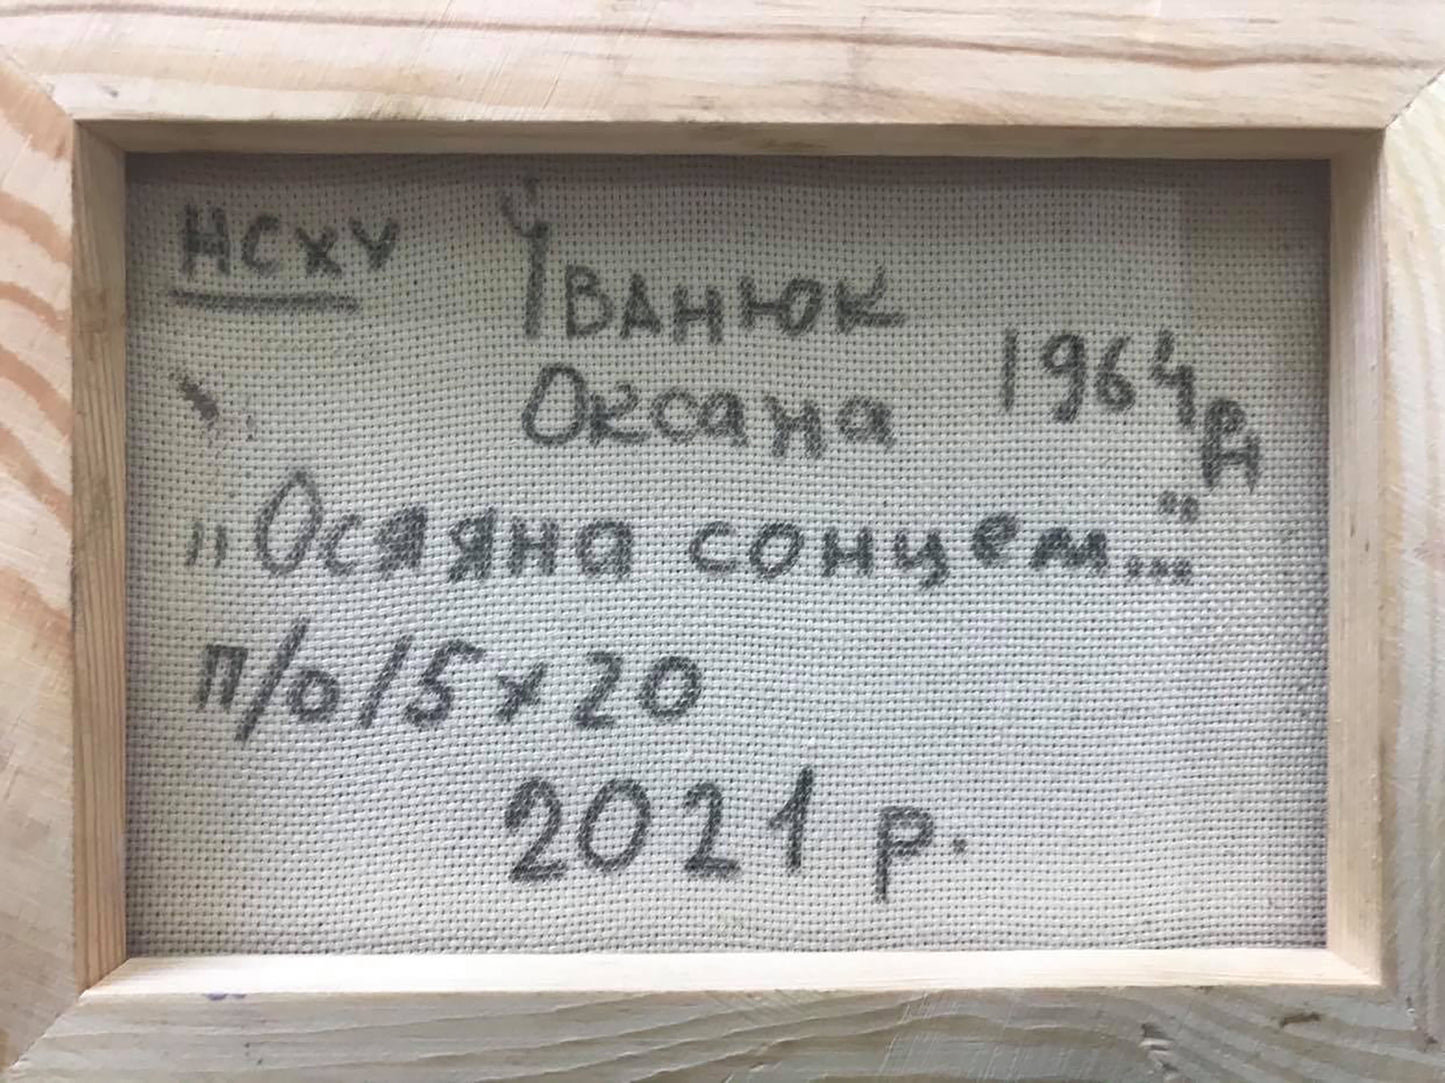 НСХУ
Іванюк
Оксана 1964 рн
„Осяяна сонцем..."
п/о 15х20
2021 р.